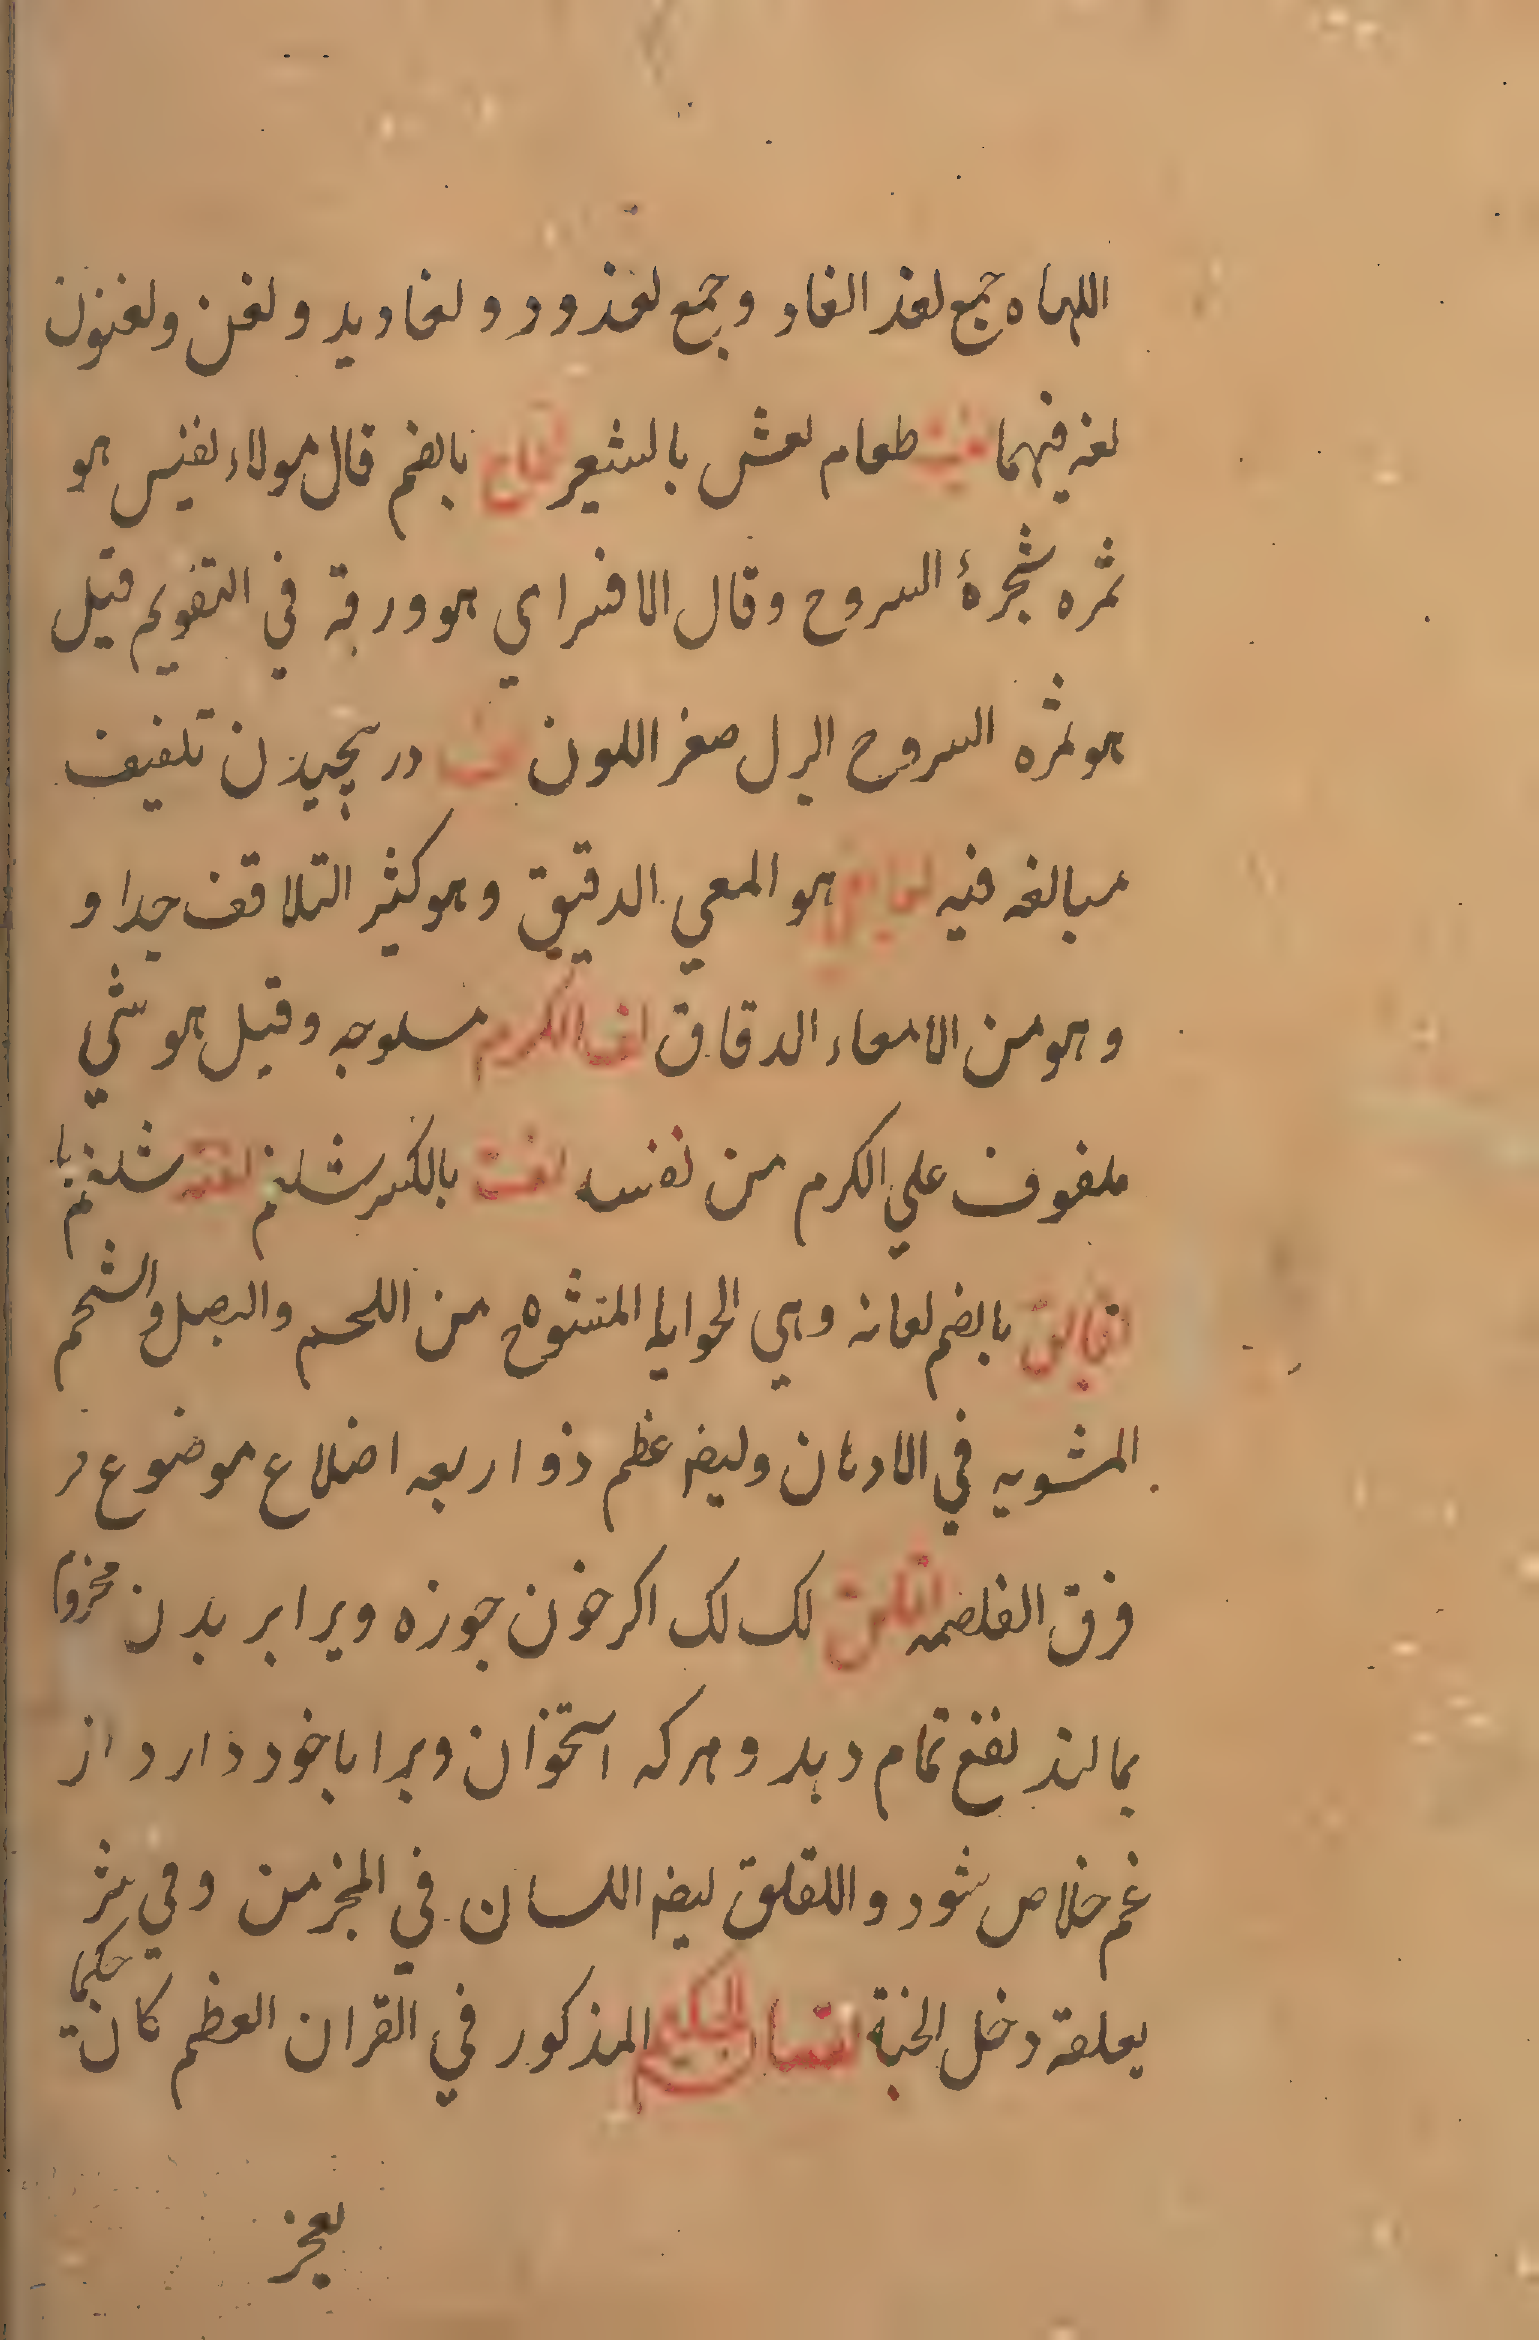 اللهاه جمع لغذ الغاد وجمع لغذود ولغاديد ولغن ولغنون
لغه فيهما لغيث طعام لعش بالشعير لفاح بالضم قال مولاء لفيس هو
ثمره شجرة السروح وقال الاقسراي هو ورقه في التقويم قيل
هو ثمره السروح البرل صغر اللون لف در پيچيدن تلفيف
مبالغه فيه هو المعي الدقيق وهو كثير التلاقف جدا و
وهو من الامعاء الدقاق لف الكرم مسلوجه وقيل هو شي
ملفوف علي الكرم من نفسه لفت بالكسر شلغم لفته شلغم با
لقالق بالضم لعانه وهي الحوايا المتشوه من اللحم والبصل والشحم
المشويه في الادهان وليضه عظم ذو اربعه اضلاع موضوع فر
فرق الغلصمه لقلق لک لک اکر خون جوزه ويرا بر بدن مجزوم
بمالند نفع تمام دهد و هرکه استخوان ويرا با خود دارد از
غم خلاص شود واللقلق ليضه اللسان في المجز من وفي شر
يعلقه دخل الجنة لقمان الحكيم المذكور في القران العظم كان حكيما
لعجز